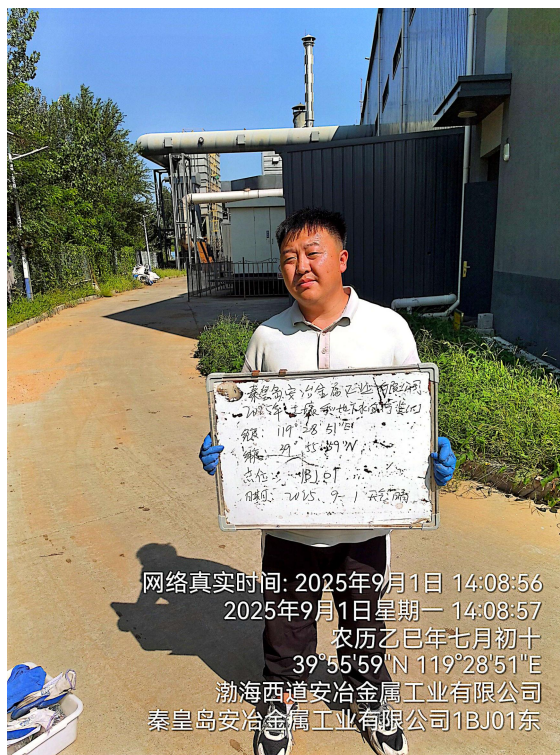 秦皇岛安冶金属工业有限公司
2025年土壤和地下水自行监测
经度: 119°28′51″E
纬度: 39°55′59″N
点位: 1BJ01
日期: 2025.9.1 天气:晴
网络真实时间: 2025年9月1日 14:08:56
2025年9月1日星期一 14:08:57
农历乙巳年七月初十
39°55'59"N 119°28'51"E
渤海西道安冶金属工业有限公司
秦皇岛安冶金属工业有限公司1BJ01东